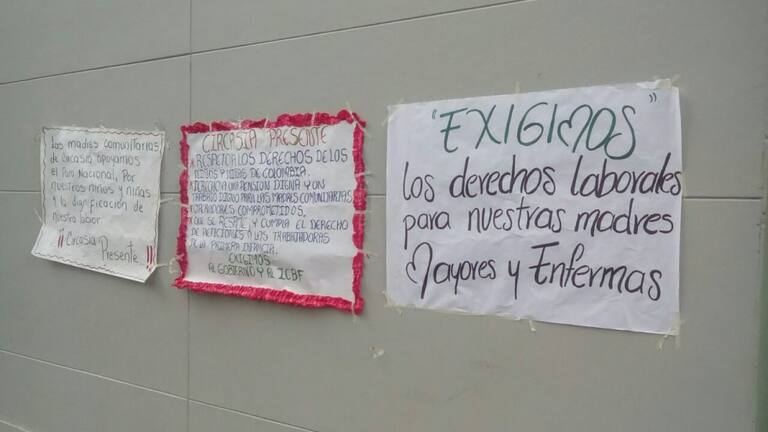 Las madres comunitarias
de Circasia apoyamos
el Paro Nacional. Por
nuestros niños y niñas
y la dignificación de
nuestra labor.
¡¡ Circasia Presente !!
CIRCASIA PRESENTE
RESPETO A LOS DERECHOS DE LOS
NIÑOS Y NIÑAS DE COLOMBIA.
DERECHO A UNA PENSION DIGNA Y UN
TRABAJO DIGNO PARA LAS MADRES COMUNITARIAS
COMPROMETIDOS.
QUE SE RESPETE Y CUMPLA EL DERECHO
DE PETICIONES A LAS TRABAJADORAS
DE LA PRIMERA INFANCIA.
EXIGIMOS
AL GOBIERNO Y AL ICBF
"EXIGIMOS"
los derechos laborales
para nuestras madres
Mayores y Enfermas